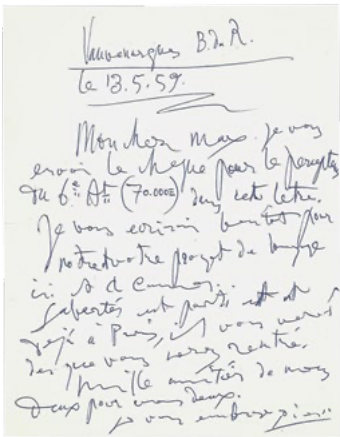 Vauvenargues B. du R.
le 13.5.59.
Mon cher Max. je vous
envoie le chèque pour le percepteur
du 6e Att (70.000E) dans cette lettre.
Je vous écrirai bientôt pour
notre votre projet de
ici. et de
est parti et est
déjà à Paris, il vous verra
dès que vous serez rentré.
mille amitiés de nous
deux pour vous deux.
je vous embrasse